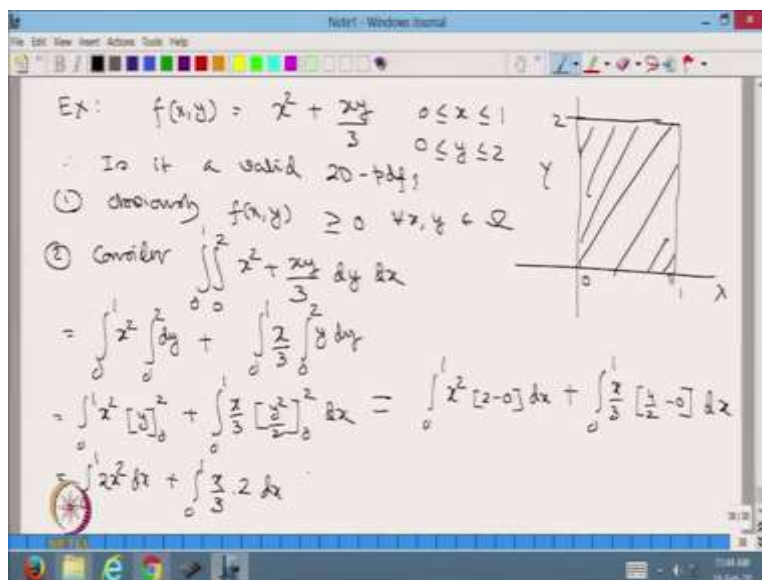 Note1 - Windows Journal
File Edit View Insert Actions Tools Help
Ex: f(x,y) = x² + xy/3   0 ≤ x ≤ 1
0 ≤ y ≤ 2
∴ Is it a valid 2D-pdf?
① obviously f(x,y) ≥ 0 ∀x, y ∈ Ω
② Consider ∫₀¹∫₀² x² + xy/3 dy dx
= ∫₀¹ x² ∫₀² dy + ∫₀¹ x/3 ∫₀² y dy
= ∫₀¹ x² [y]₀² + ∫₀¹ x/3 [y²/2]₀² dx = ∫₀¹ x² [2-0] dx + ∫₀¹ x/3 [4/2 - 0] dx
= ∫₀¹ 2x² dx + ∫₀¹ x/3 . 2 dx
2
Y
0 1 X
NPTEL